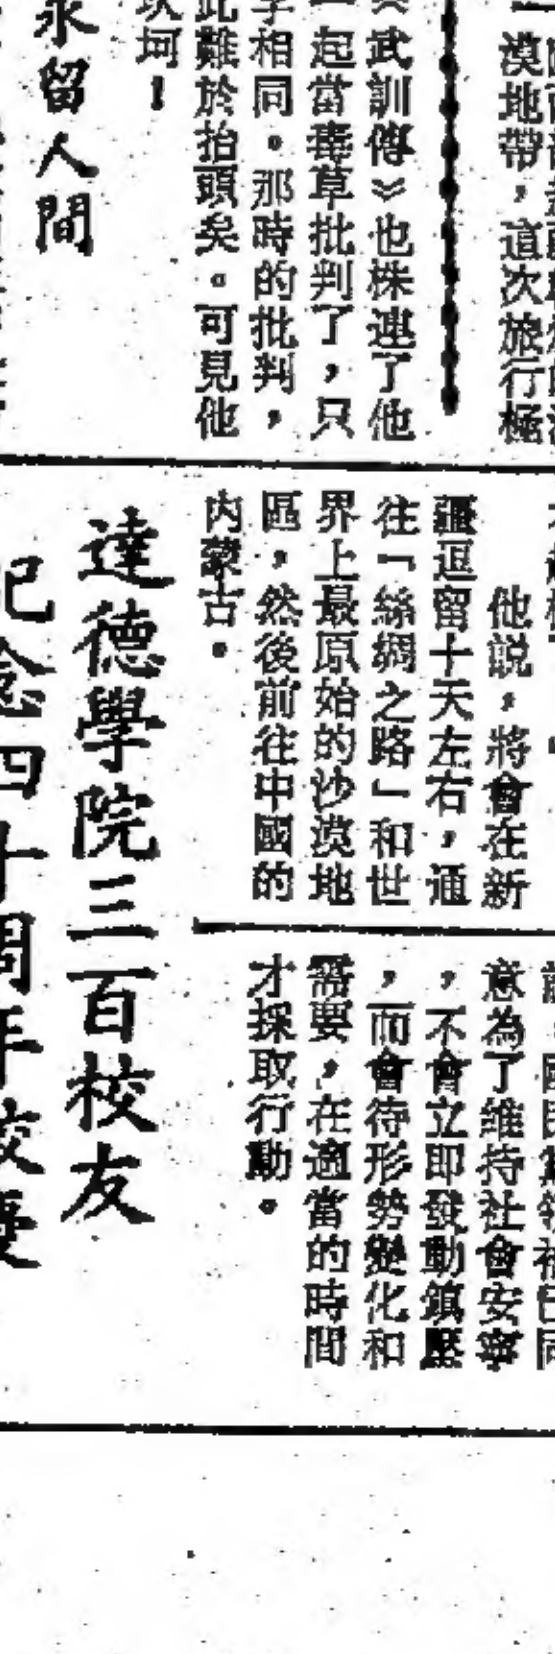 漠地帶，這次旅行極
《武訓傳》也株連了他
一起當毒草批判了，只
字相同。那時的批判，
此難於抬頭矣。可見他
坎坷！
永留人間
他說，將會在新
疆逗留十天左右，通
往「絲綢之路」和世
界上最原始的沙漠地
區，然後前往中國的
內蒙古。
意為了維持社會安寧
，不會立即發動鎮壓
，而會待形勢變化和
需要，在適當的時間
才採取行動。
達德學院三百校友
紀念四十周年校慶